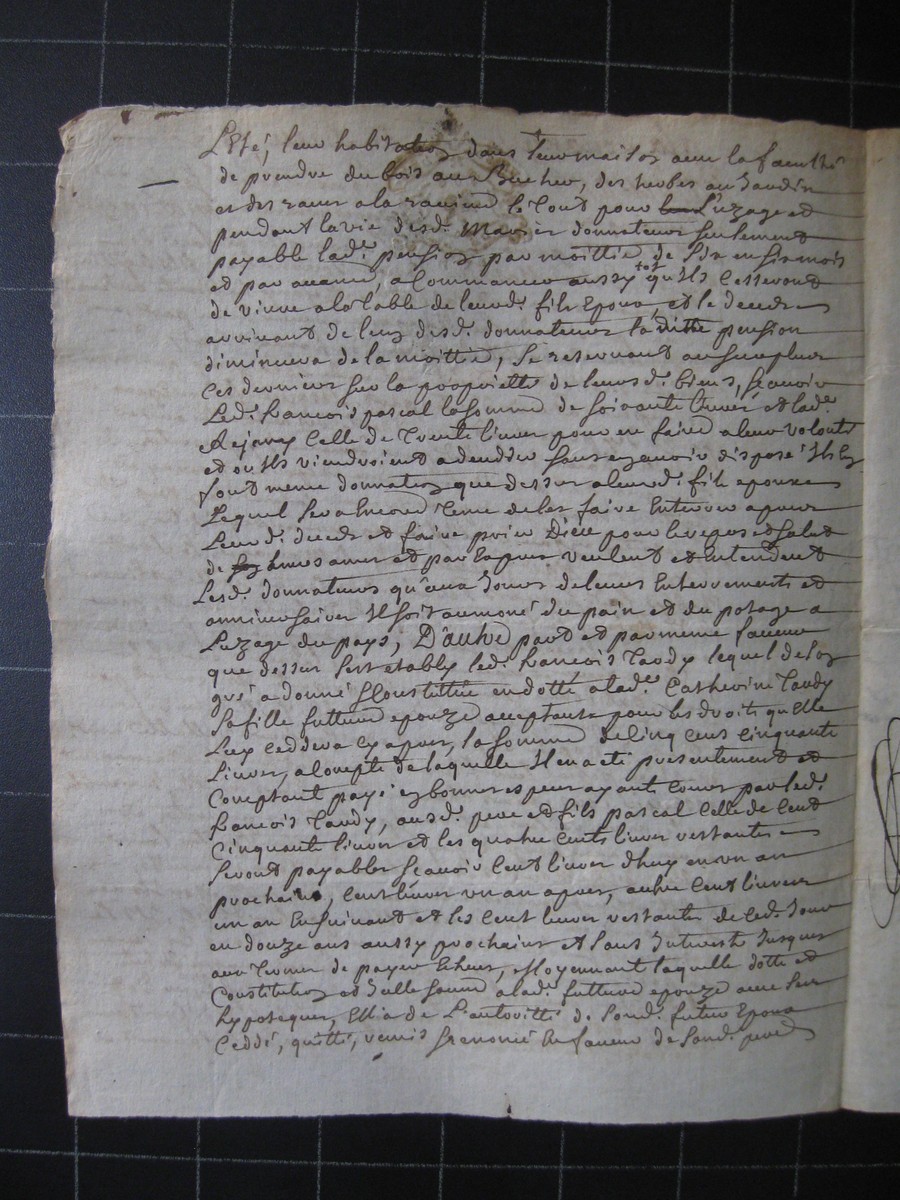 L'Eté, leur habitation dans leur maison avec la faculthé
de prendre du bois au Bucher, des herbes au Jardin
et des raves a la raviere le Tout pour L'uzage et
pendant la vie desd. Mariés donnateurs seulement
payable lad.e pension par moittié de six en six mois
et par avance, a Commancer aussy tot qu'ils Cesseront
de vivre a la table de leurd. fils Epoux, et le deceds
arrivant de l'un desd. donnateurs la ditte pension
diminuera de la moittié, Se reservant au surplus
Ces derniers sur la propriette de leursd. biens, Scavoir
Led. francois pascal la somme de soixante Livres et lad.e
Rejany Celle de Trente livres pour en faire a leur volonté
et ou ils viendroient a deceder sans en avoir disposé ils en
font meme donnation que dessus a leurd. fils epoux
Lequel sera Encore Tenu de les faire Enterrer apres
Leurd. deceds et faire prier Dieu pour le repos et salut
de leurs ames et par Expres veulent et Entendent
Lesd. donnateurs qu'aux Jours de leurs Enterrements et
anniversaires Il soit aumoné du pain et du potage a
L'uzage du pays, D'autre part et par meme faveur
que dessus s'est etably led. francois Tardy lequel de son
gré a donné & Constittué en dotte a lad.e Catherine Tardy
sa fille future epouze acceptante pour les droits qu'elle
Luy Ceddera Cy apres, la somme de Cinq cens cinquante
Livres, a Compte de laquelle Il en a eté presentement et
Comptant payé en bonnes especes ayant Cours par led.
francois Tardy, ausd. pere et fils pascal Celle de Cent
Cinquant livres et les quatre cents livres restantes
seront payables Scavoir Cent livres d'huy en un an
prochain, Cent livres un an apres, autre Cent livres
un an Ensuivant et les Cent livres restantes de Ced. Jour
en douze ans aussy prochains et sans Interests Jusques
aux Termes de payer Echeus, Moyennant laquelle dotte et
Constitution et Icelle sauve a lad.e future epouze avec ses
hypoteques, Elle a de L'autoritté de Sond. futur Epoux
Ceddé, quitté, remis & renoncé En faveur de Sond. pere